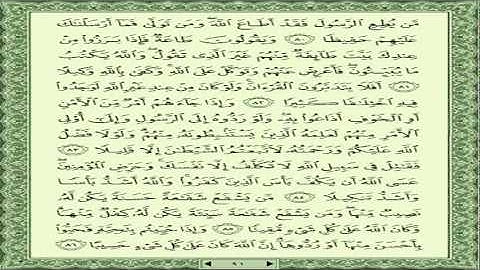 مَّن يُطِعِ ٱلرَّسُولَ فَقَدْ أَطَاعَ ٱللَّهَ وَمَن تَوَلَّىٰ فَمَآ أَرْسَلْنَٰكَ
عَلَيْهِمْ حَفِيظًا ٨٠ وَيَقُولُونَ طَاعَةٌ فَإِذَا بَرَزُوا۟ مِنْ
عِندِكَ بَيَّتَ طَآئِفَةٌ مِّنْهُمْ غَيْرَ ٱلَّذِى تَقُولُ وَٱللَّهُ يَكْتُبُ
مَا يُبَيِّتُونَ فَأَعْرِضْ عَنْهُمْ وَتَوَكَّلْ عَلَى ٱللَّهِ وَكَفَىٰ بِٱللَّهِ وَكِيلًا
٨١ أَفَلَا يَتَدَبَّرُونَ ٱلْقُرْءَانَ وَلَوْ كَانَ مِنْ عِندِ غَيْرِ ٱللَّهِ لَوَجَدُوا۟
فِيهِ ٱخْتِلَٰفًا كَثِيرًا ٨٢ وَإِذَا جَآءَهُمْ أَمْرٌ مِّنَ ٱلْأَمْنِ
أَوِ ٱلْخَوْفِ أَذَاعُوا۟ بِهِۦ وَلَوْ رَدُّوهُ إِلَى ٱلرَّسُولِ وَإِلَىٰٓ أُو۟لِى
ٱلْأَمْرِ مِنْهُمْ لَعَلِمَهُ ٱلَّذِينَ يَسْتَنۢبِطُونَهُۥ مِنْهُمْ وَلَوْلَا فَضْلُ
ٱللَّهِ عَلَيْكُمْ وَرَحْمَتُهُۥ لَٱتَّبَعْتُمُ ٱلشَّيْطَٰنَ إِلَّا قَلِيلًا ٨٣
فَقَٰتِلْ فِى سَبِيلِ ٱللَّهِ لَا تُكَلَّفُ إِلَّا نَفْسَكَ وَحَرِّضِ ٱلْمُؤْمِنِينَ
عَسَى ٱللَّهُ أَن يَكُفَّ بَأْسَ ٱلَّذِينَ كَفَرُوا۟ وَٱللَّهُ أَشَدُّ بَأْسًا
وَأَشَدُّ تَنكِيلًا ٨٤ مَّن يَشْفَعْ شَفَٰعَةً حَسَنَةً يَكُن لَّهُۥ
نَصِيبٌ مِّنْهَا وَمَن يَشْفَعْ شَفَٰعَةً سَيِّئَةً يَكُن لَّهُۥ كِفْلٌ مِّنْهَا
وَكَانَ ٱللَّهُ عَلَىٰ كُلِّ شَىْءٍ مُّقِيتًا ٨٥ وَإِذَا حُيِّيتُم بِتَحِيَّةٍ فَحَيُّوا۟
بِأَحْسَنَ مِنْهَآ أَوْ رُدُّوهَآ إِنَّ ٱللَّهَ كَانَ عَلَىٰ كُلِّ شَىْءٍ حَسِيبًا ٨٦
٩١